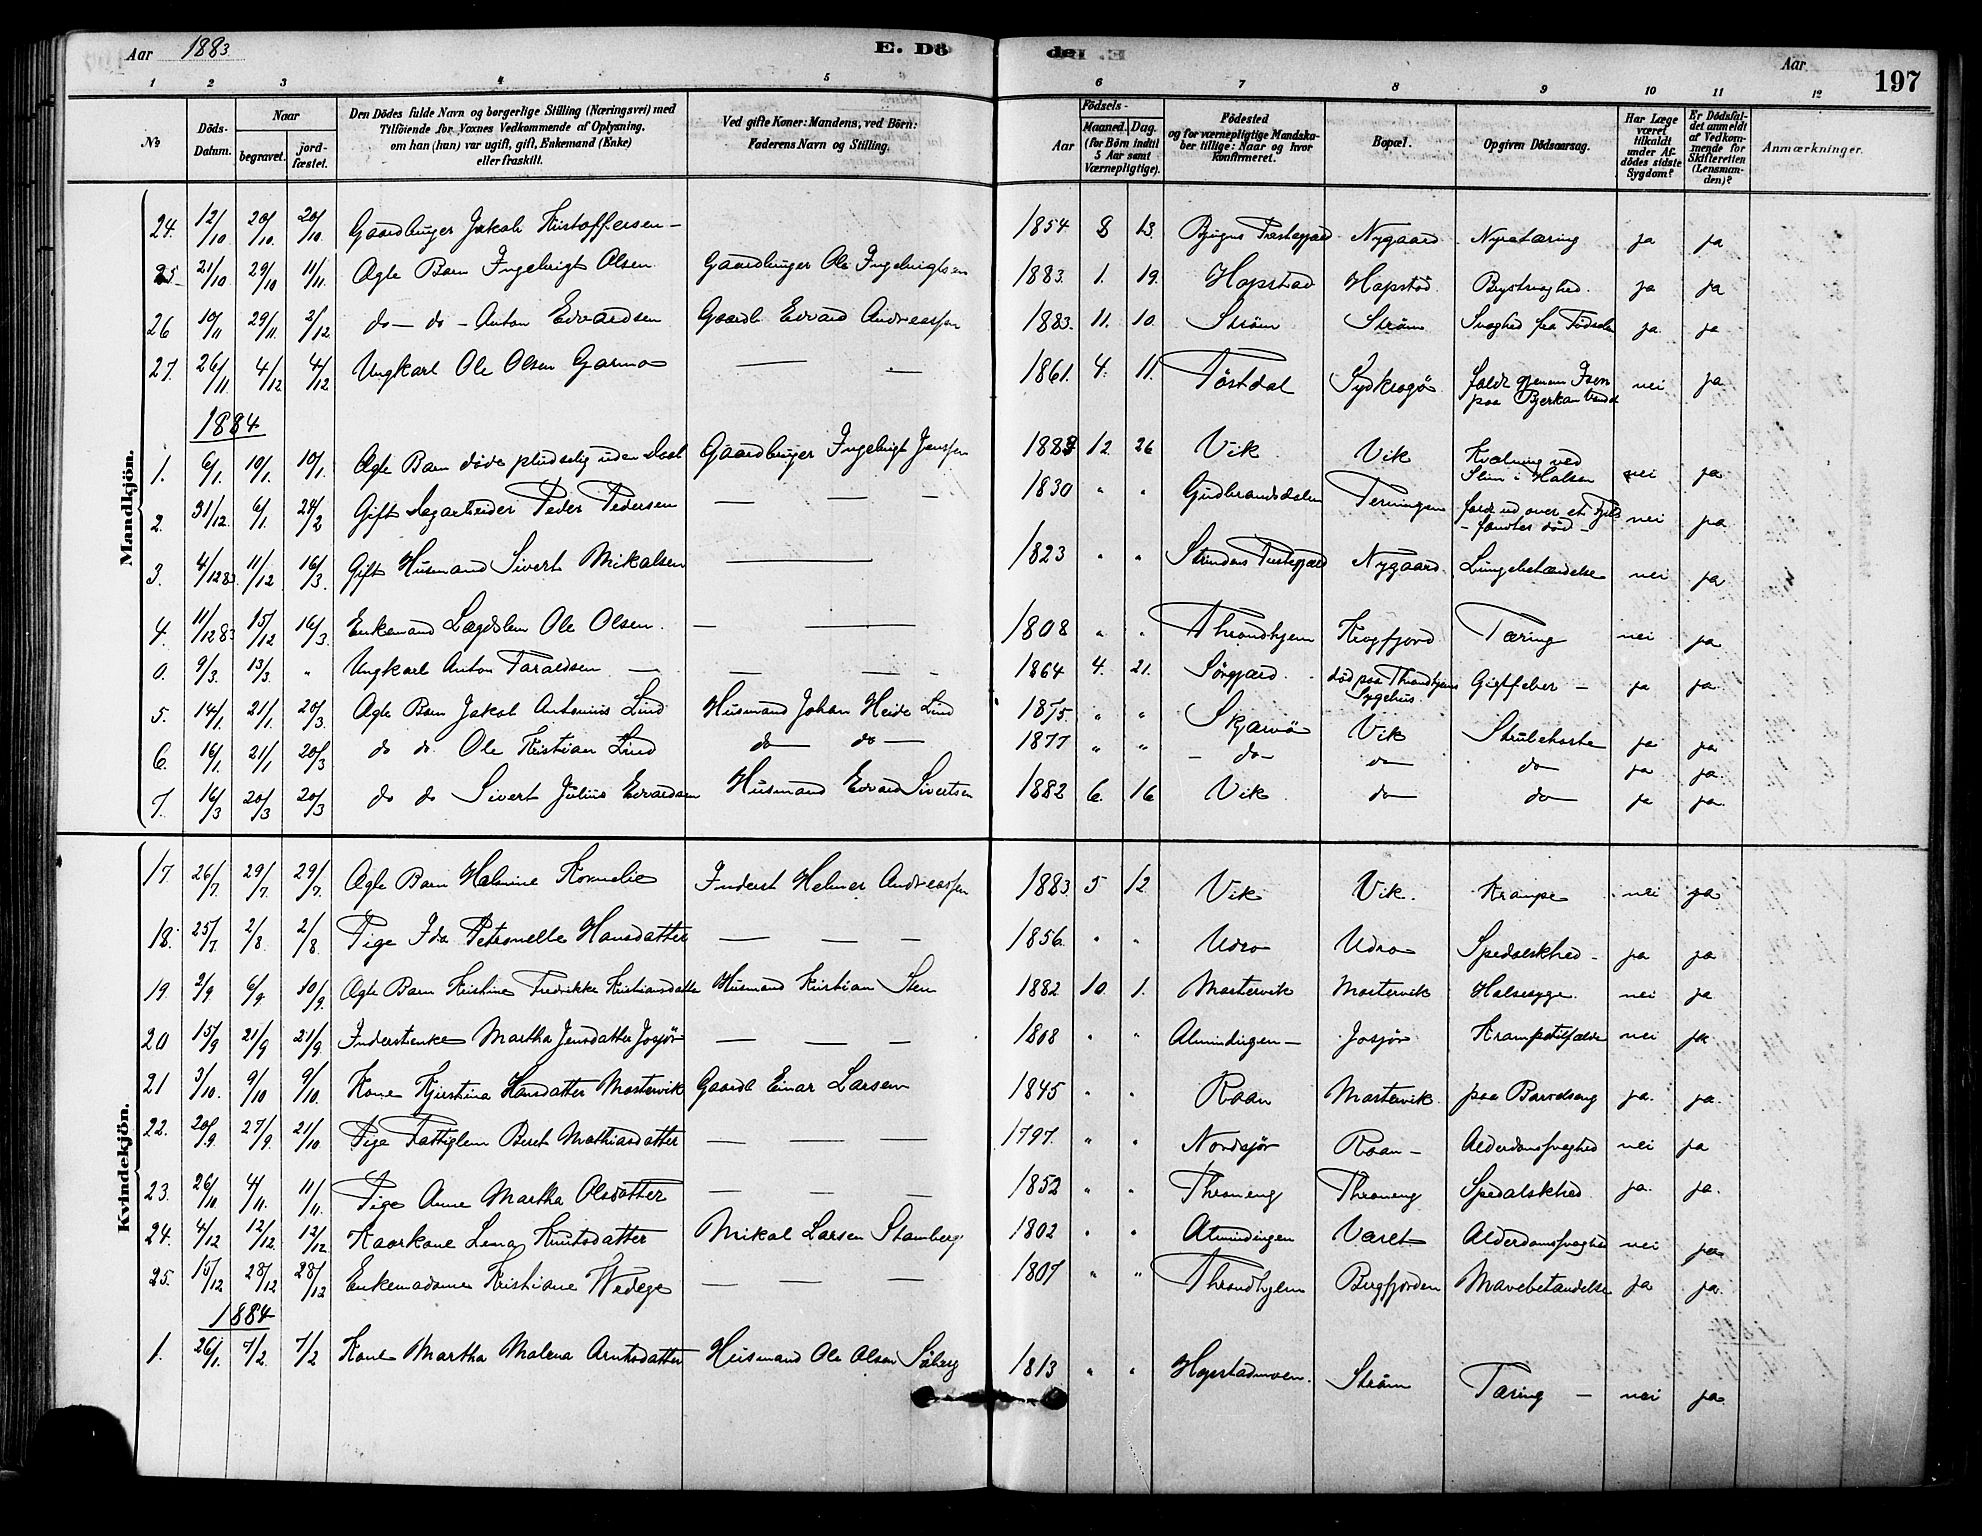 Aar 1883 E. Dö
de. E. Aar 197
1 2 3 4 5 6 7 8 9 10 11 12
No Döds-Datum. Naar begravet. jordfæstet. Den Dödes fulde Navn og borgerlige Stilling (Næringsvei) med Tilföiende for Voxnes Vedkommende af Oplysning, om han (hun) var ugift, gift, Enkemand (Enke) eller fraskilt. Ved gifte Koner: Mandens, ved Börn: Faderens Navn og Stilling. Födsels- Aar Maaned. Dag. (for Börn indtil 5 Aar samt Værnepligtige). Födested og for værnepligtige Mandskaber tillige: Naar og hvor Konfirmeret. Bopæl. Opgiven Dödsaarsag. Har Læge været tilkaldt under Afdödes sidste Sygdom? Er Dödsfaldet anmeldt af Vedkommende for Skifteretten (Lensmanden)? Anmærkninger.
Mandkjön.
24. 12/10 20/10. 20/10. Gaardbruger Jakob Kristoffersen — 1854 8 13. Bjugns Præstegjæld Nygaard Nyretæring ja ja
25 21/10 29/10 11/11. Ægte Barn Ingebrigt Olsen Gaardbruger Ole Ingebrigtsen 1883. 1. 19. Hopstad Hopstad. Brystsvaghed. ja ja
26 10/11 29/11. 2/12 do — do — Anton Edvardsen Gaardb. Edvard Andreassen 1883. 11. 10. Strøm Strøm Svaghed fra Fødselen ja. ja
27. 26/11 4/12 4/12 Ungkarl Ole Olsen Garmo — — 1861. 4. 11. Tøstdal Sydkrogø faldt gjennem Isen paa Bjerkan Vandet nei ja.
1884
1. 6/1. 10/1. 10/1. Ægte Barn døde pludselig uden Daab Gaardbruger Ingebrigt Jenssen 1883 12 26 Vik Vik Kvælning ved Slim i Halsen nei ja
2. 31/12. 6/1. 24/2 Gift Sagarbeider Peder Pedersen — — — 1830 " " Gudbrandsdalen Terningen faldt ud over et Fjeld – fandtes død – nei ja
3. 4/12 83. 11/12 16/3. Gift Husmand Sivert Mikalsen — 1823 " " Strindens Præstegjæld Nygaard. Lungebetændelse nei ja
4. 11/12 83 15/12 16/3. Enkemand Lægdslem Ole Olsen. — — 1808 " " Throndhjem Krogfjord Tæring nei ja
0. 9/3. 13/3. " Ungkarl Anton Taraldsen — — — 1864 4. 21. Sørgjærd. død paa Throndhjems Sygehus. Gigtfeber — ja ja.
5. 14/1. 21/1. 20/3 Ægte Barn Jakob Antonius Lind Husmand Johan Heide Lind 1875. " " Skjærvø Vik Strubehoste ja ja
6. 16/1. 21/1 20/3 do do. Ole Kristian Lind do — do — 1877 " " — do — do do ja ja.
7. 16/3 20/3 20/3 do do Sivert Julius Edvardsen Husmand Edvard Sivertsen 1882 6. 16 Vik do do ja ja.
Kvindekjön.
17 26/7 29/7 29/7. Ægte Barn Halmine Kornelie Inderst Helmer Andreassen 1883. 5 12. Vik Vik. Krampe nei ja
18. 25/7 2/8. 2/8 Pige Ida Petronelle Hansdatter — — — 1856. " " Udro Udro Spedalskhed — ja ja
19. 2/9. 6/9. 10/9. Ægte Barn Kristine Fredrikke Kristiansdatter Husmand Kristian Sten 1882 10. 1. Mastervik Mastervik Halssyge. nei ja
20 15/9 21/9 21/9. Inderstenke Martha Jensdatter Josjør — — — 1808 " " Almindingen — Josjør Krampetilfælde nei ja
21 3/10. 9/10 9/10. Kone Kjerstina Hansdatter Mastervik Gaardb. Einar Larsen 1845 " " Raan Mastervik. paa Barselseng ja. ja.
22. 20/9. 27/9. 21/10 Pige Fattiglem Beret Mathiasdatter — — — 1797. " " Nordsjør Raan — Alderdomssvaghed nei ja
23. 26/10 4/11. 11/11. Pige Anne Martha Olsdatter — — — 1852 " " Throneng Throneng Spedalskhed. ja. ja.
24. 4/12 12/12. 12/12. Kaarkone Lena Knutsdatter Mikal Larsen Stamberg 1802 " " Almindingen Været Alderdomssvaghed nei ja
25. 15/12 28/12 28/12 Enkemadame Kristiane Wedege — — — 1807 " " Throndhjem Bergfjorden Mavebetændelse ja ja.
1884
1. 26/1. 7/2. 7/2 Kone Martha Malena Arntsdatter Husmand Ole Olsen Søberg 1813 " " Hopstadmoen. Strøm Tæring — nei ja